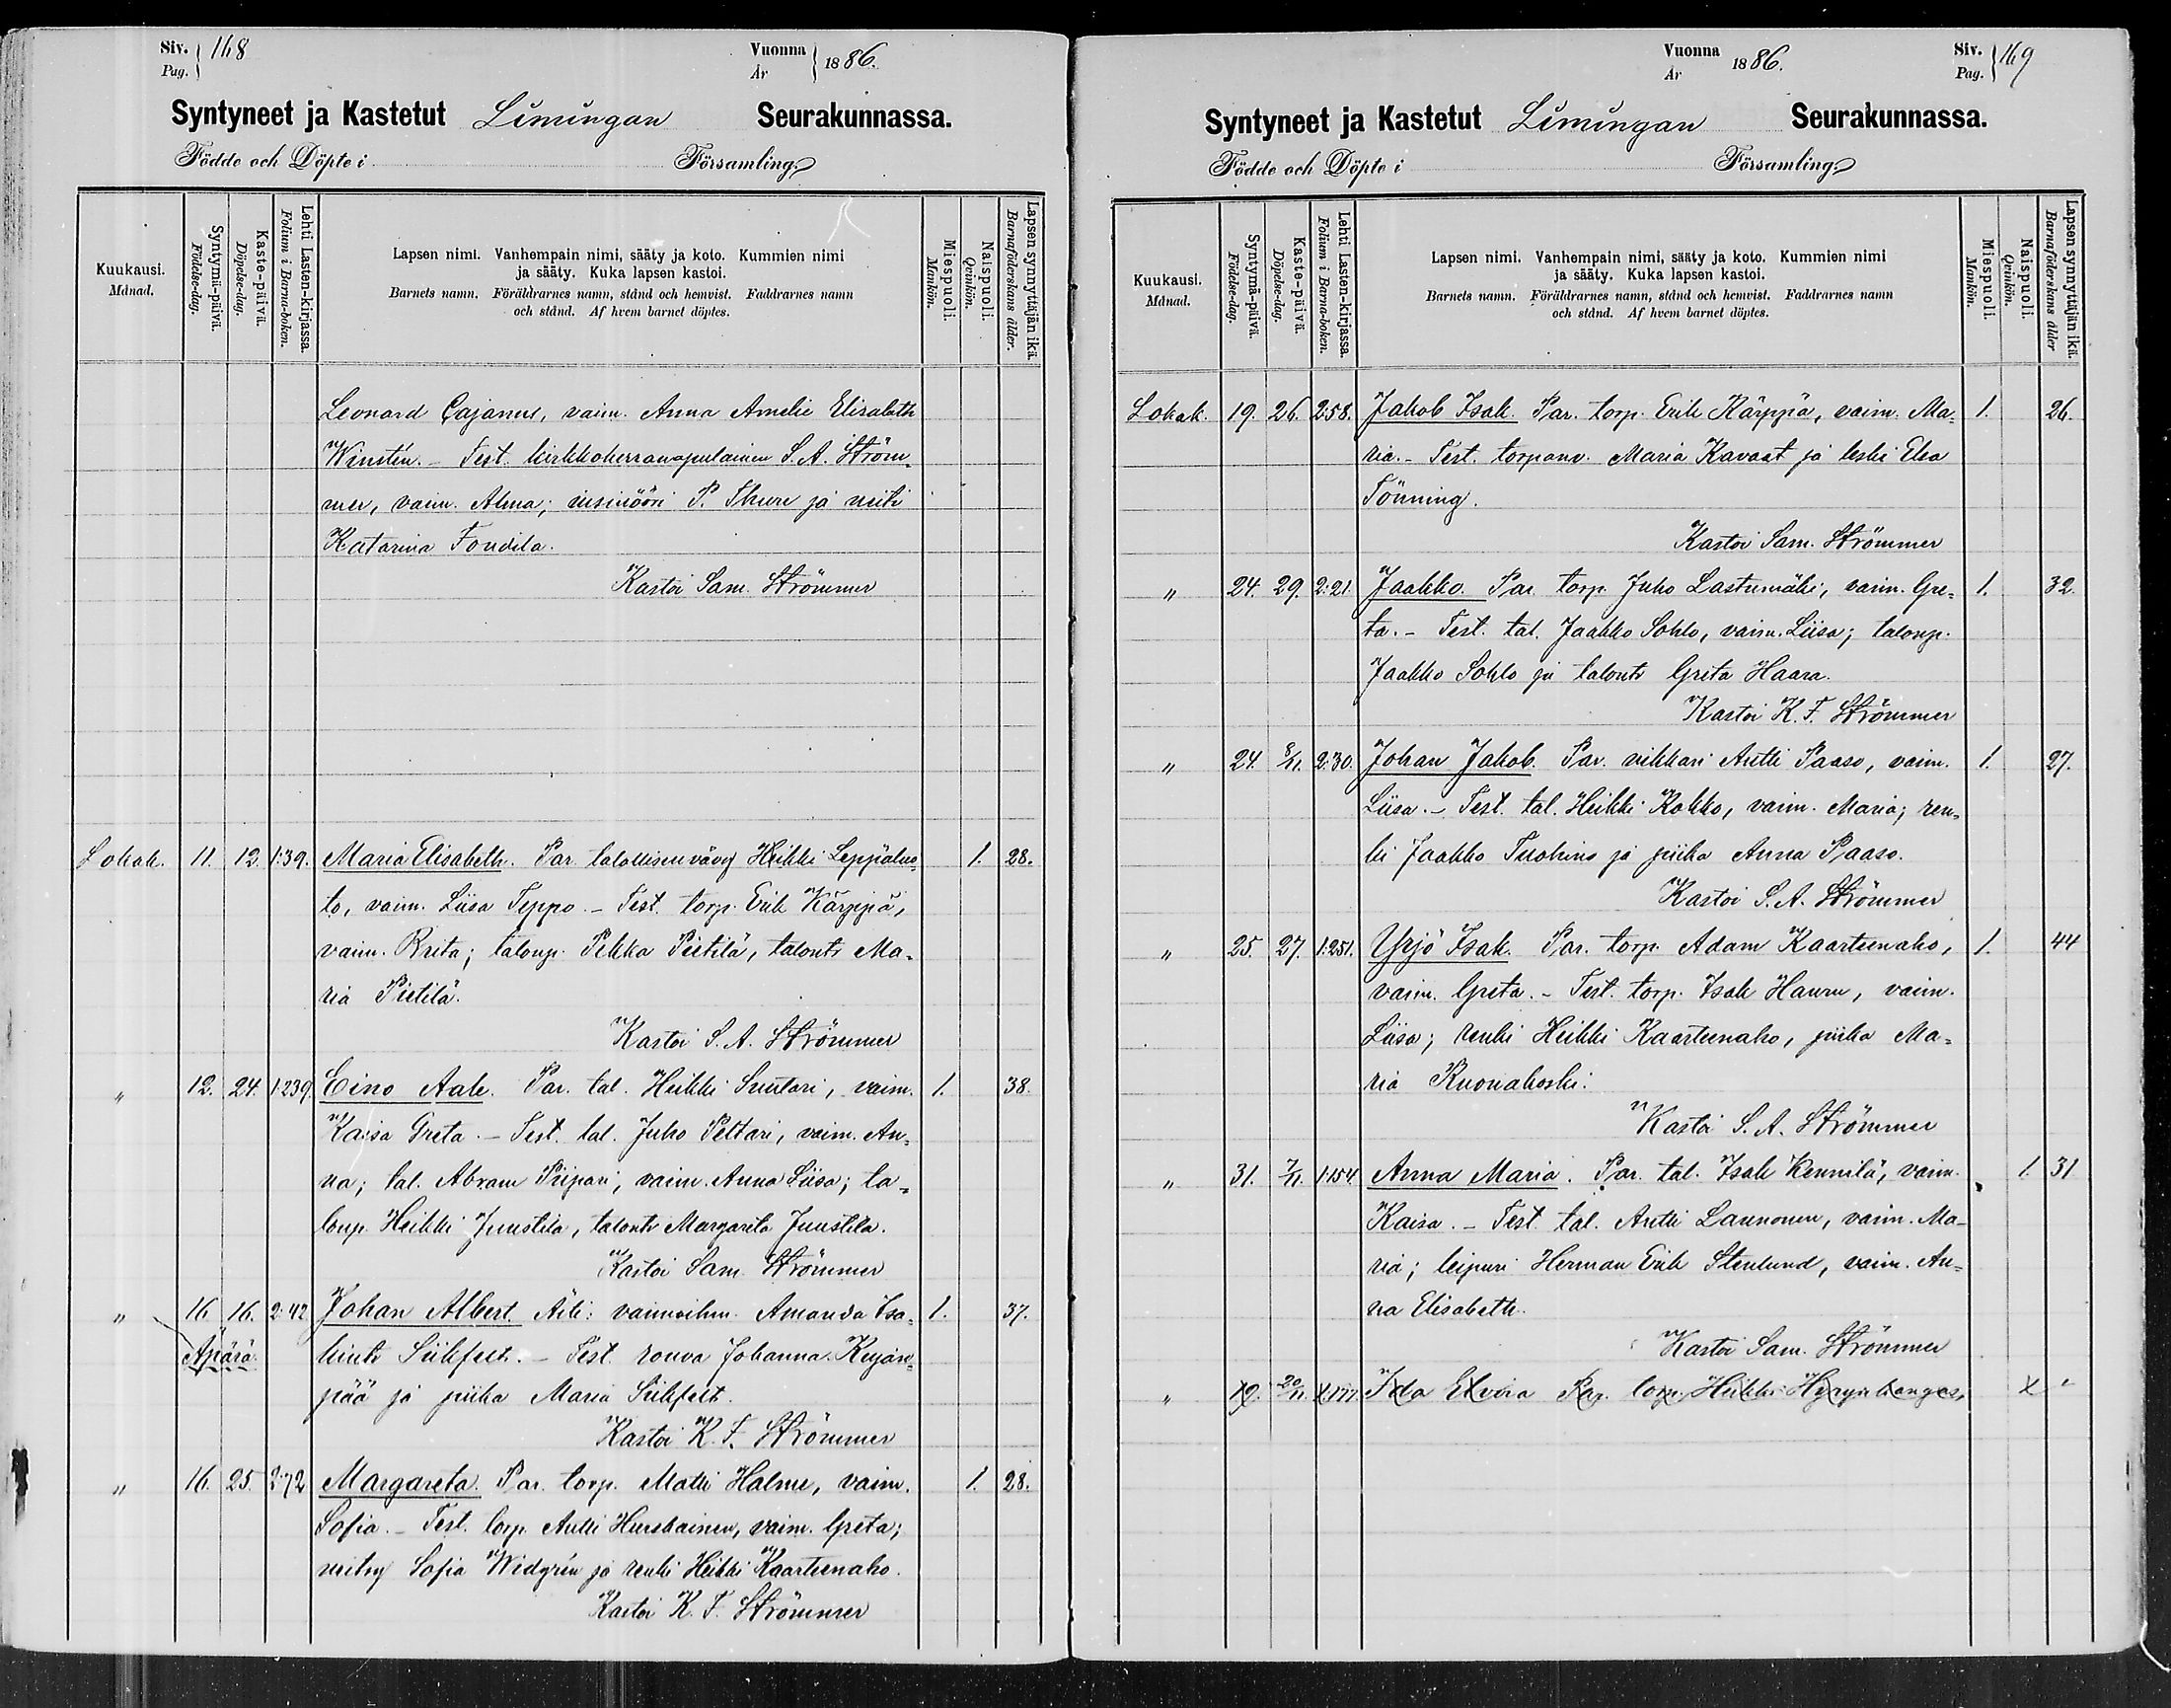 Siv. Pag. 168
Vuonna År 1886.
Syntyneet ja Kastetut Limingan Seurakunnassa.
Födde och Döpte i Församling.
Kuukausi. Månad.
Syntymä-päivä. Födelse-dag.
Kaste-päivä. Döpelse-dag.
Lehti Lasten-kirjassa. Folium i Barna-boken.
Lapsen nimi. Vanhempain nimi, sääty ja koto. Kummien nimi
ja sääty. Kuka lapsen kastoi.
Barnets namn. Föräldrarnes namn, stånd och hemvist. Faddrarnes namn
och stånd. Af hvem barnet döptes.
Miespuoli. Mankön.
Naispuoli. Qvinkön.
Lapsen synnyttäjän ikä. Barnaföderskans ålder.
Leonard Cajanus, vaim. Anna Amelie Elisabeth
Winstén. - Test. kirkkoherranapulainen S. A. Ström-
mer, vaim. Alma; insinööri P. Thure ja neiti
Katarina Fondila.
Kastoi Sam. Strömmer
Lokak. 11. 12. 1:39. Maria Elisabeth. Par. talollisen vävy Heikki Leppäluo- 1. 28.
to, vaim. Liisa Teppo. - Test. torp. Erik Kärppä,
vaim. Brita; talonp. Pekka Pietilä, talontr Ma-
ria Pietilä.
Kastoi S. A. Strömmer
" 12. 24. 1:239. Eino Aale. Par. tal. Heikki Suutari, vaim. 1. 38.
Kaisa Greta. - Test. tal. Juho Peltari, vaim. An-
na; tal. Abram Piipari, vaim. Anna Liisa; ta-
lonp. Heikki Juustila, talontr Margareta Juustila.
Kastoi Sam. Strömmer
" 16 16. 2:42. Johan Albert. Äiti: vaimoihm. Amanda Isa- 1. 37.
Äpärä.
kintr Siikfelt. - Test. rouva Johanna
pää ja piika Maria Siikfelt.
Kastoi K. F. Strömmer
" 16. 25. 2:72 Margareta. Par. torp. Matti Halme, vaim. 1. 28.
Sofia. - Test. torp. Antti Hurskainen, vaim. Greta;
neitsy Sofia Widgrén ja renki Heikki Kaarteenaho.
Kastoi K. F. Strömmer
Vuonna År 1886.
Siv. Pag. 169
Syntyneet ja Kastetut Limingan Seurakunnassa.
Födde och Döpte i Församling.
Kuukausi. Månad.
Syntymä-päivä. Födelse-dag.
Kaste-päivä. Döpelse-dag.
Lehti Lasten-kirjassa. Folium i Barna-boken.
Lapsen nimi. Vanhempain nimi, sääty ja koto. Kummien nimi
ja sääty. Kuka lapsen kastoi.
Barnets namn. Föräldrarnes namn, stånd och hemvist. Faddrarnes namn
och stånd. Af hvem barnet döptes.
Miespuoli. Mankön.
Naispuoli. Qvinkön.
Lapsen synnyttäjän ikä. Barnaföderskans ålder
Lokak. 19. 26. 2:58. Jakob Isak. Par. torp. Erik Kärppä, vaim. Ma- 1. 26.
ria. - Test. torpanv. Maria Kavaat ja leski Elsa
Tönning.
Kastoi Sam. Strömmer
" 24. 29. 2:21. Jaakko. Par. torp. Juho Lastumäki, vaim. Gre- 1. 32.
ta. - Test. tal. Jaakko Sohlo, vaim. Liisa; talonp.
Jaakko Sohlo ja talontr Greta Haara.
Kastoi K. F. Strömmer
" 24. 8/11. 2:30. Johan Jakob. Par. nikkari Antti Paaso, vaim. 1. 27.
Liisa. - Test. tal. Heikki Kokko, vaim. Maria; ren-
ki Jaakko Tuohino ja piika Anna Paaso.
Kastoi S. A. Strömmer
" 25. 27. 1:251. Yrjö Isak. Par. torp. Adam Kaarteenaho, 1. 44
vaim. Greta. - Test. torp. Isak Hauru, vaim.
Liisa; renki Heikki Kaarteenaho, piika Ma-
ria Ruonakoski.
Kastoi S. A. Strömmer
" 31. 7/11. 1:154 Anna Maria. Par. tal. Isak Kennilä, vaim. 1. 31
Kaisa. - Test. tal. Antti Launonen, vaim. Ma-
ria; leipuri Herman Erik Stenlund, vaim. An-
na Elisabeth.
Kastoi Sam. Strömmer
" 12. 20/11. 1:177. Ida Elvira Par. torp. Heikki Hyrynkangas,